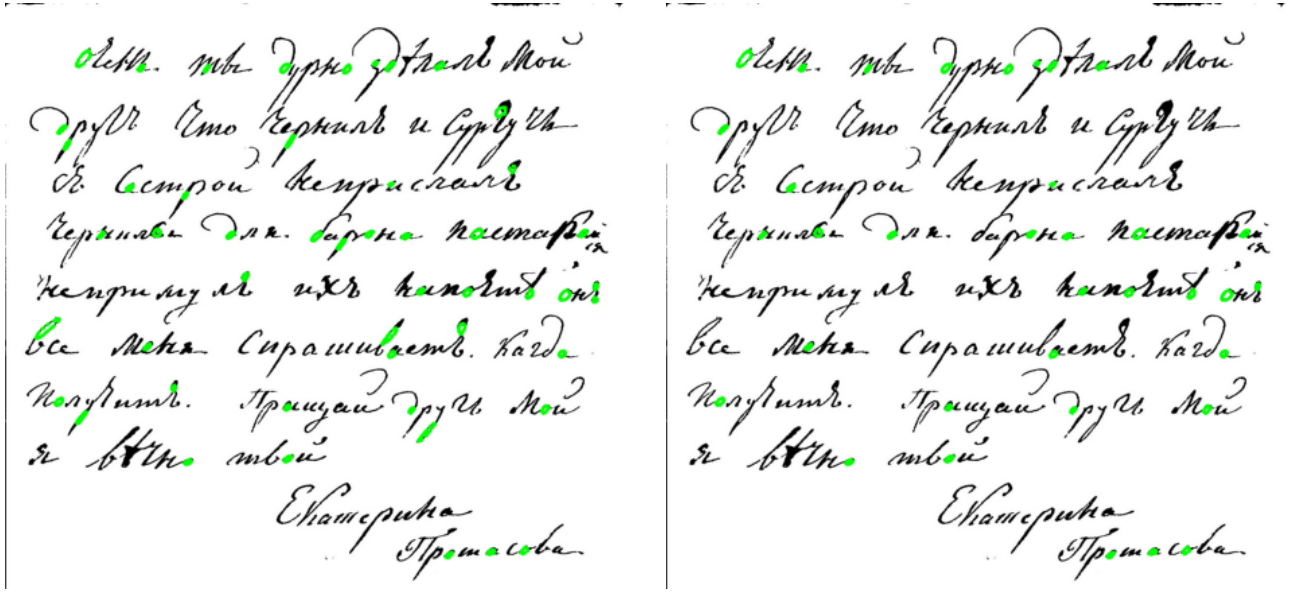 очень ты дурно здѣлалъ мой
другъ что чернилъ и сургучи
я састрой неприслалъ
чернилы для барона настаявай
ся
непримулъ ихъ напоѣитъ онъ
все меня спрашиваетъ. кагда
получитъ. Пращай другъ мой
я вѣчно твой
Екатерина
Протасова
очень ты дурно здѣлалъ мой
другъ что чернилъ и сургучи
я састрой неприслалъ
чернилы для барона
ся
ихъ онъ
все меня спрашиваетъ. кагда
получитъ. Пращай другъ мой
я вѣчно твой
Екатерина
Протасова